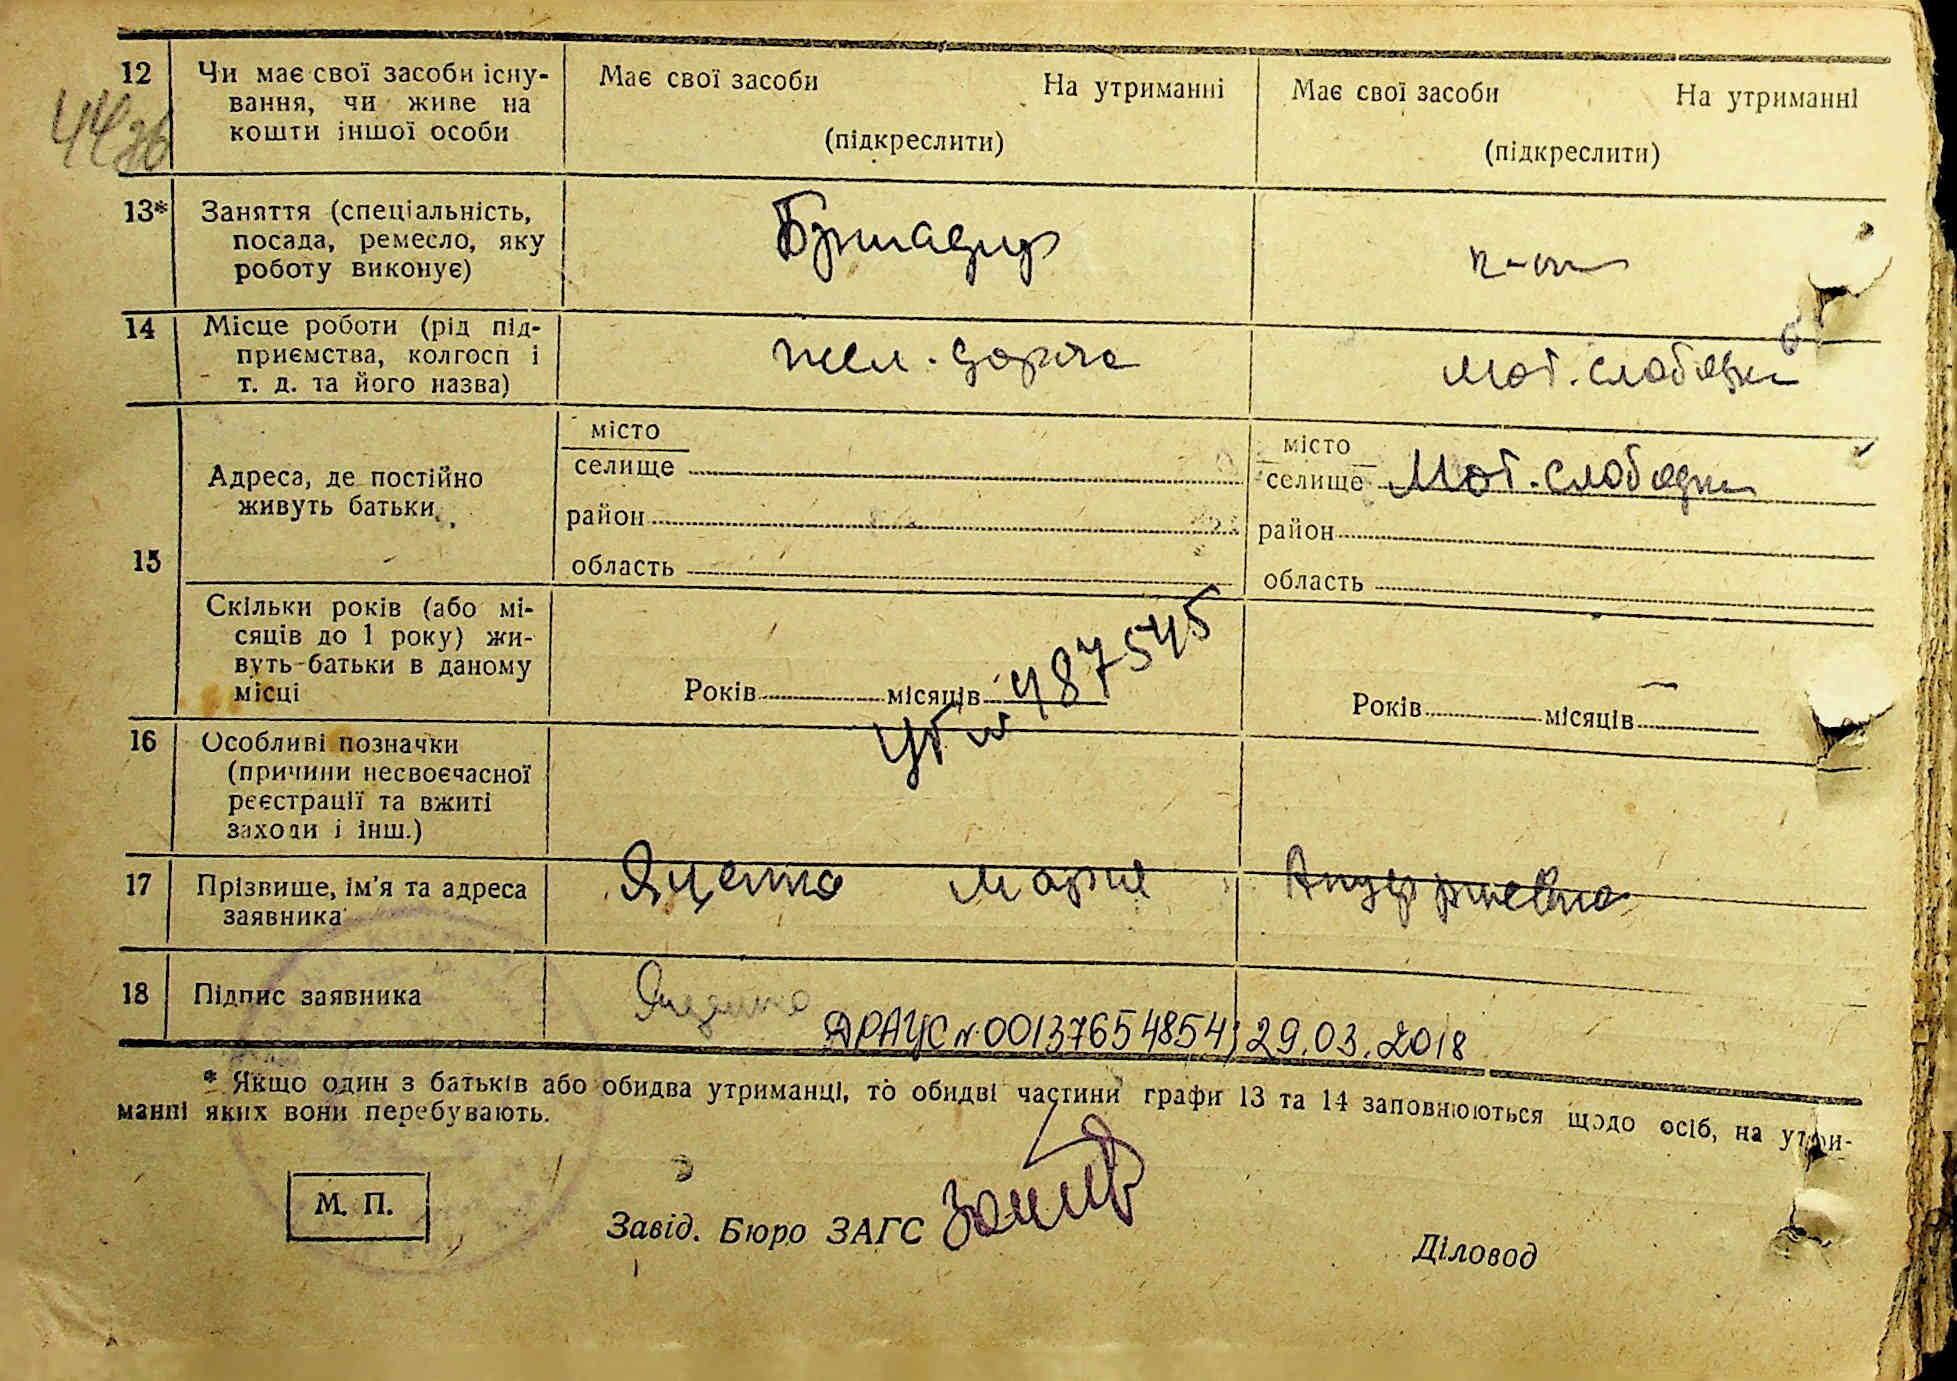 44зв
12 Чи має свої засоби існу- Має свої засоби На утриманні Має свої засоби На утриманні
вання, чи живе на
кошти іншої особи (підкреслити) (підкреслити)
13* Заняття (спеціальність, Бригадир
посада, ремесло, яку
роботу виконує)
14 Місце роботи (рід під- жел. дорога Мот. слободка
приємства, колгосп і
т. д. та його назва)
15 Адреса, де постійно
живуть батьки
місто місто
селище селище Мот. слободка
район район
область область
Скільки років (або мі-
сяців до 1 року) жи-
вуть батьки в даному
місці
Років місяців Років місяців
487545
16 Особливі позначки
(причини несвоєчасної
реєстрації та вжиті
заходи і інш.)
17 Прізвище, ім’я та адреса Яценко Мария Андреевна
заявника
18 Підпис заявника Яценко
ДРАЦС № 00137654854; 29.03.2018
* Якщо один з батьків або обидва утриманці, то обидві частини графи 13 та 14 заповнюються щодо осіб, на утри-
манні яких вони перебувають.
М. П.
Завід. Бюро ЗАГС
Діловод